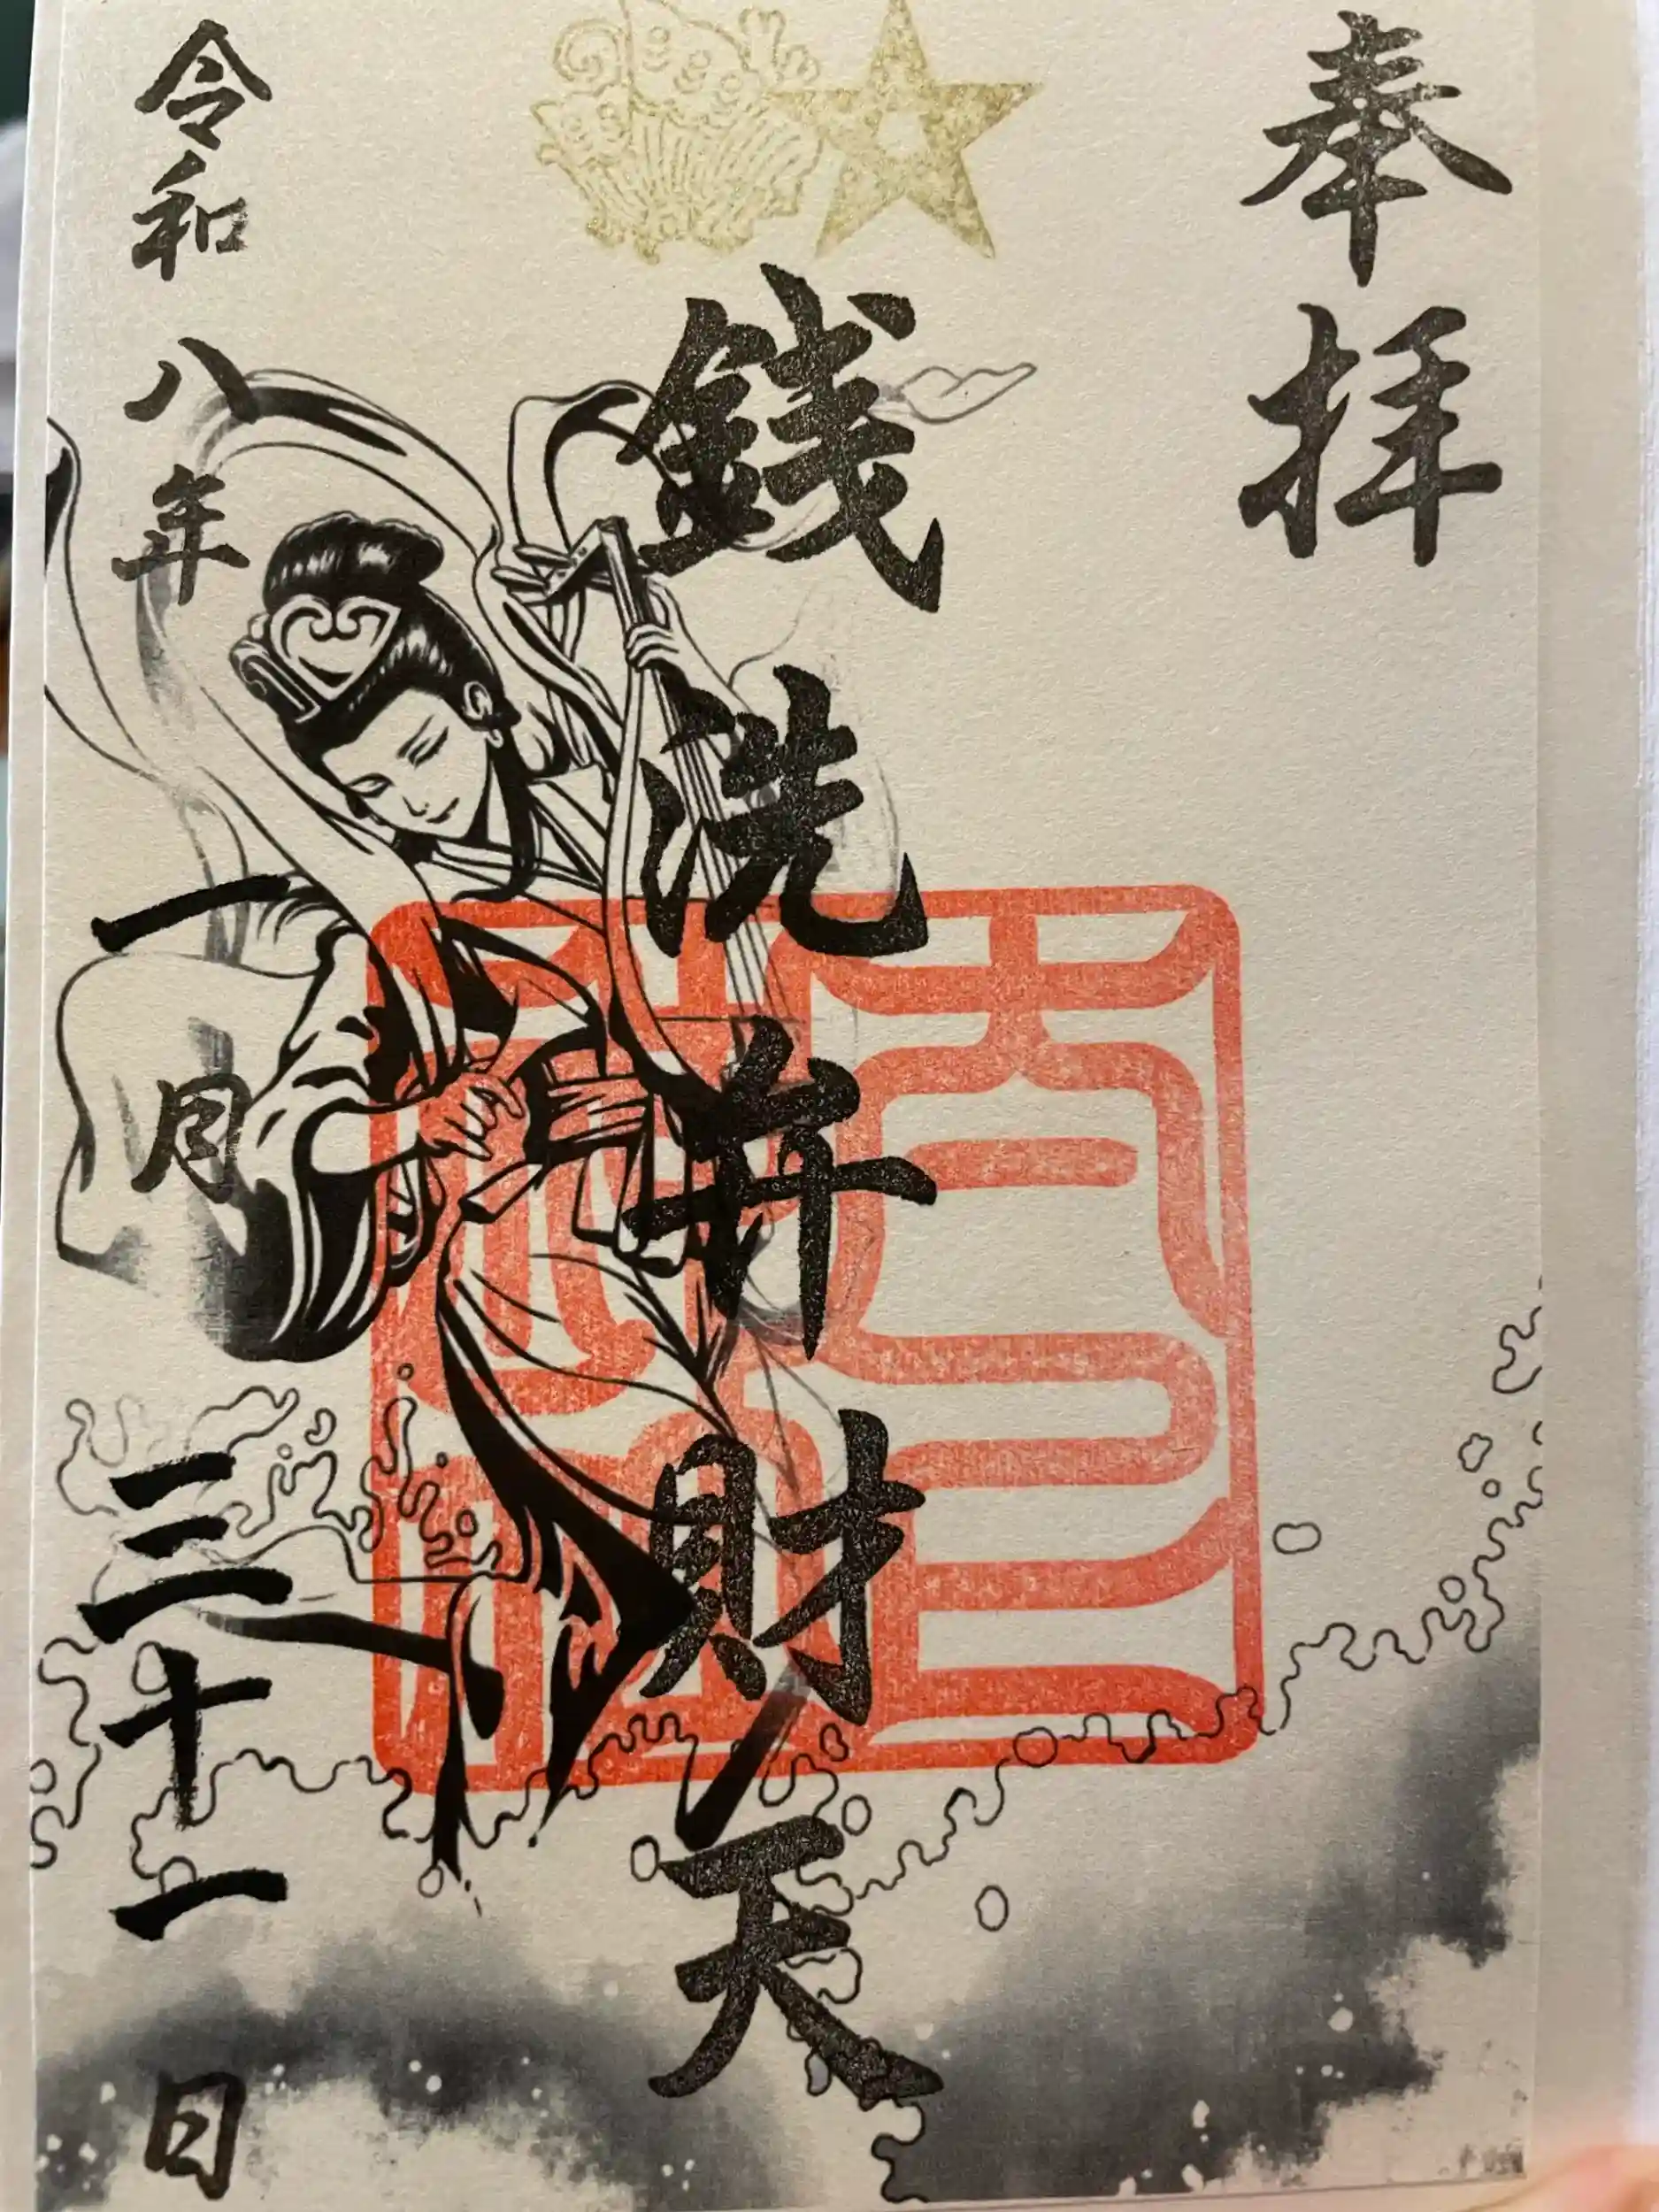 奉拝
銭洗弁財天
令和八年一月三十一日